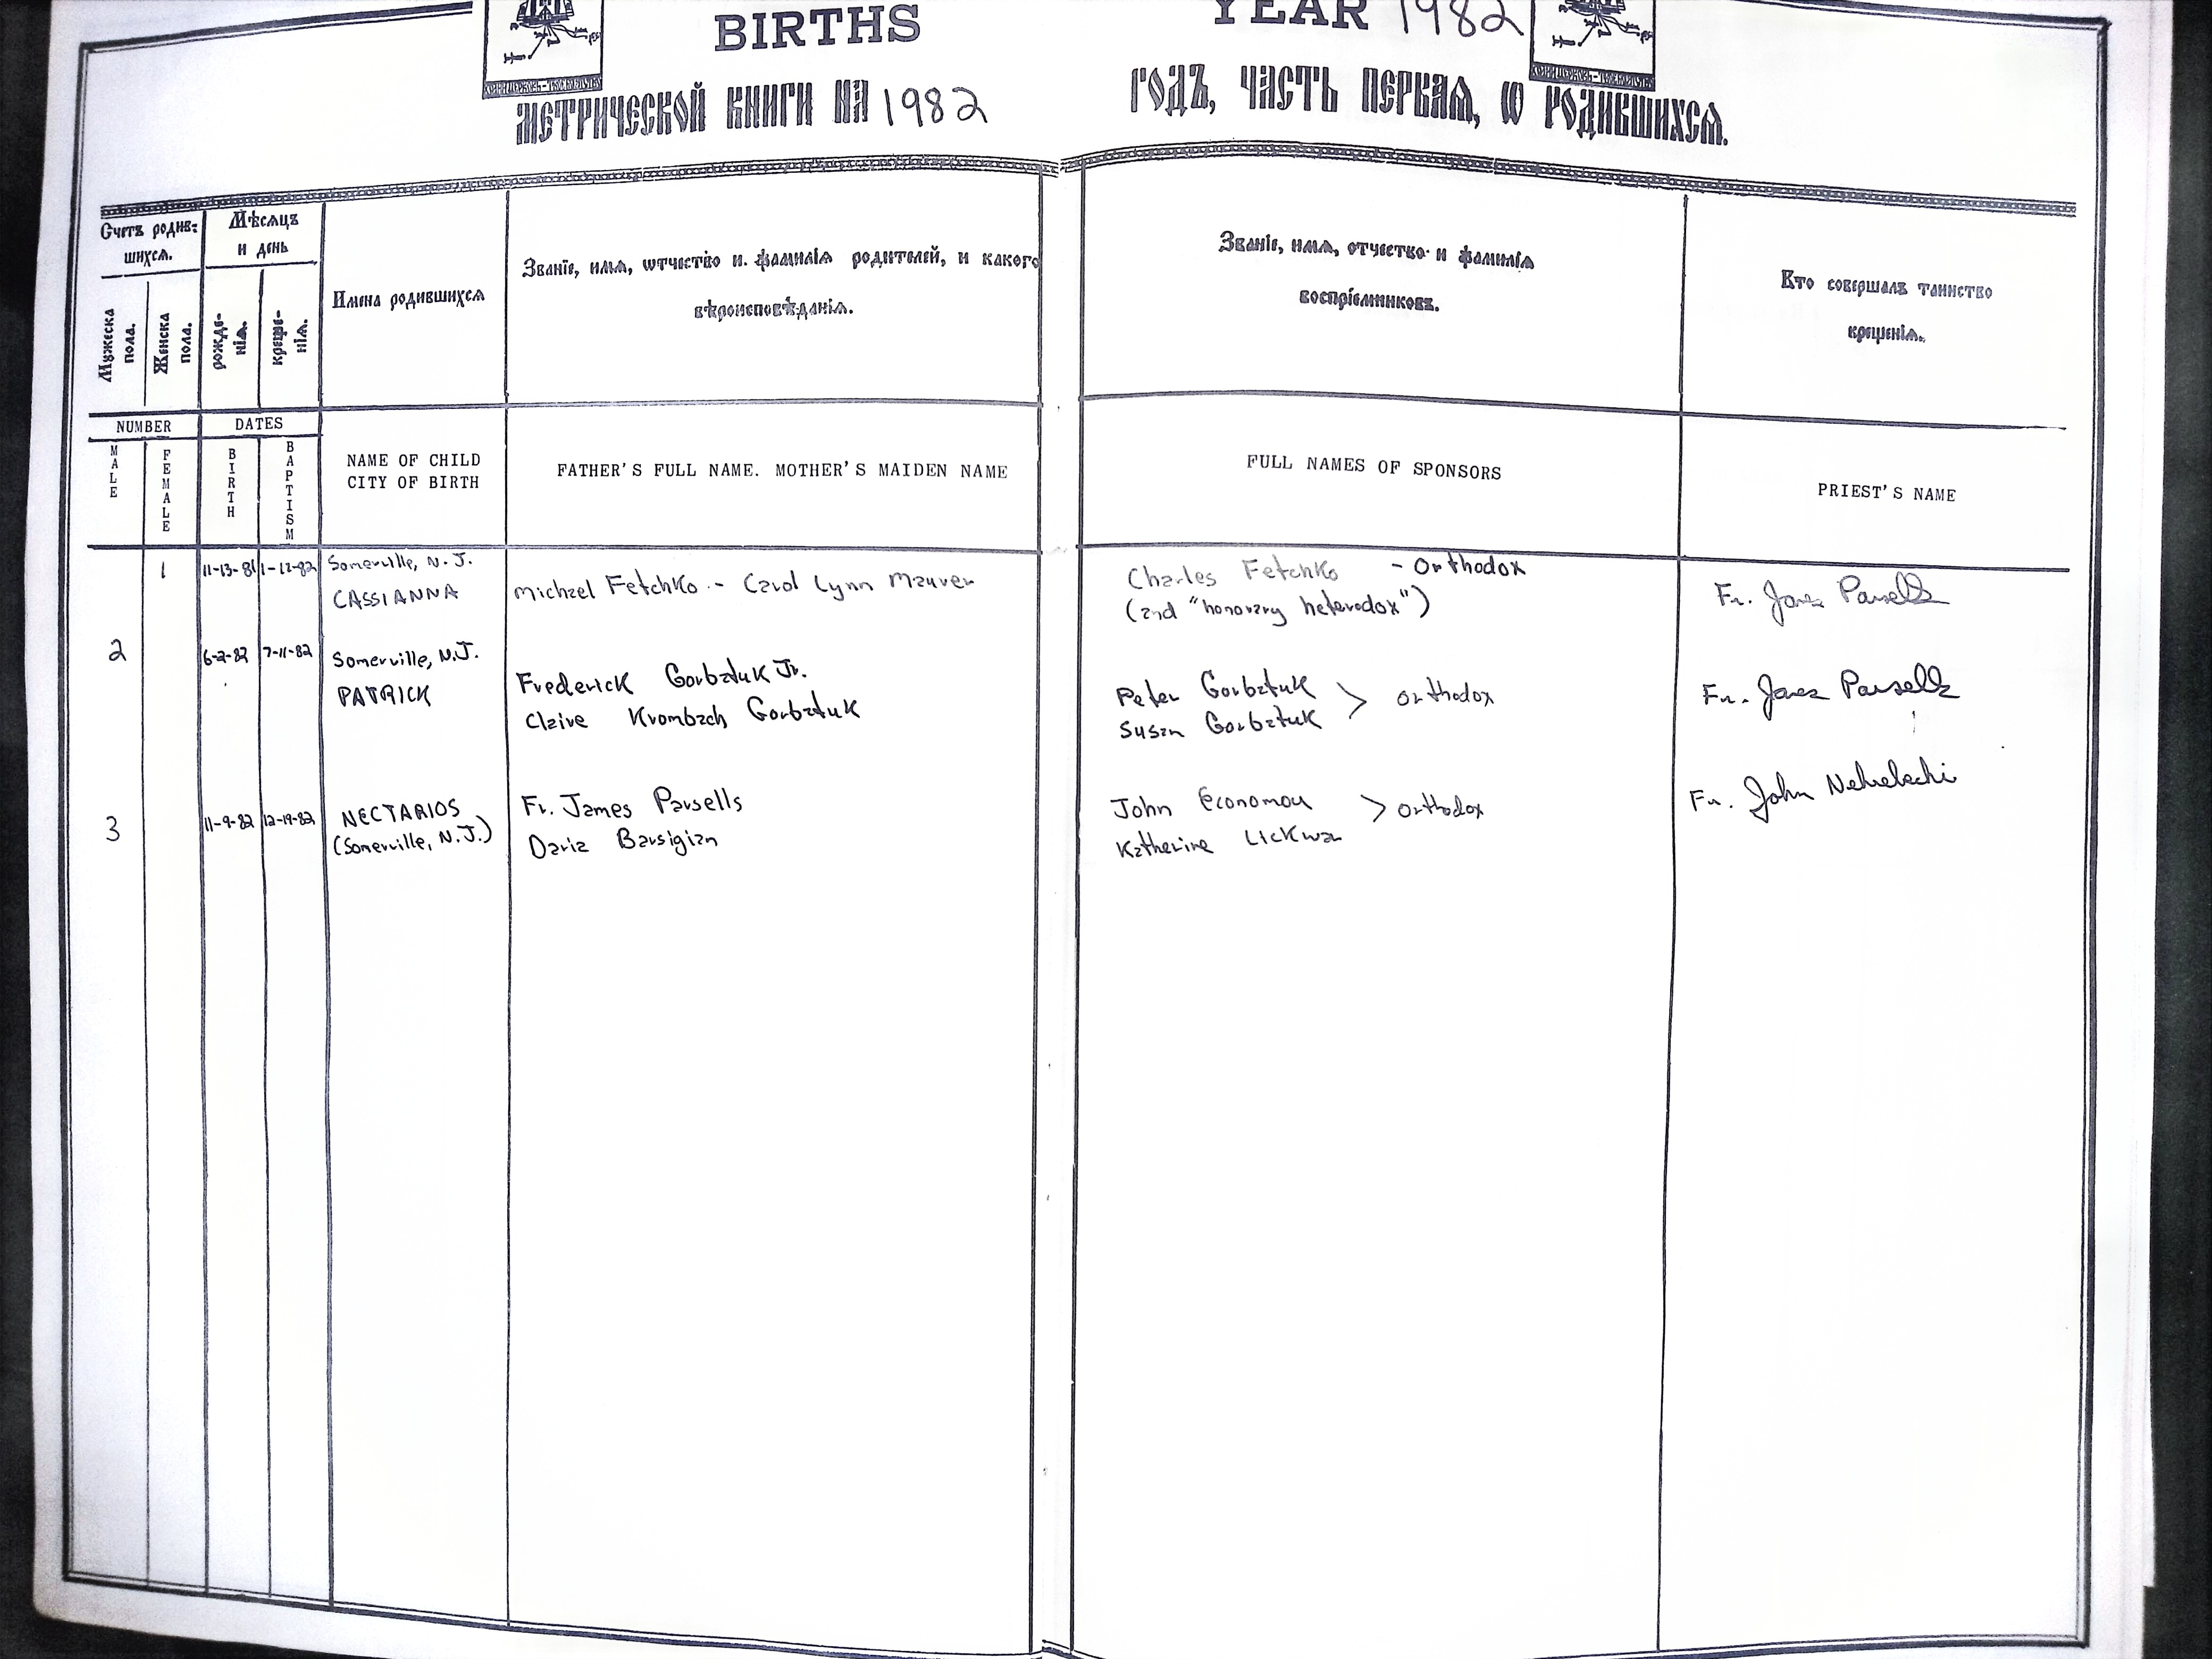 BIRTHS YEAR 1982
МЕТРИЧЕСКОЙ КНИГИ НА 1982 ГОДЪ, ЧАСТЬ ПЕРВАѦ, Ѡ РОДИВШИХСѦ.
Счетъ родив-
шихсѧ.
Мужеска
пола.
Женска
пола.
Мѣсѧцъ
и день
рожде-
нїѧ.
креще-
нїѧ.
Имена родившихсѧ
Званїе, имѧ, ѡтчество и. фамилїѧ родителей, и какого
вѣроисповѣданїѧ.
Званїе, имѧ, отчество и фамилїѧ
воспрїемниковъ.
Кто совершалъ таинство
крещенїѧ.
NUMBER
MALE
FEMALE
DATES
BIRTH
BAPTISM
NAME OF CHILD
CITY OF BIRTH
FATHER'S FULL NAME. MOTHER'S MAIDEN NAME
FULL NAMES OF SPONSORS
PRIEST'S NAME
1 11-13-81 1-12-82 Somerville, N.J.
CASSIANNA
Michael Fetchko - Carol Lynn Maurer
Charles Fetchko - Orthodox
(and "honorary heterodox")
Fr. James Parsells
2 6-2-82 7-11-82 Somerville, N.J.
PATRICK
Frederick Gorbatuk Jr.
Claire Krombach Gorbatuk
Peter Gorbatuk
Susan Gorbatuk > Orthodox
Fr. James Parsells
3 11-9-82 12-19-82 NECTARIOS
(Somerville, N.J.)
Fr. James Parsells
Daria Barsigian
John Economou > Orthodox
Katherine Lickwar
Fr. John Nehrebecki